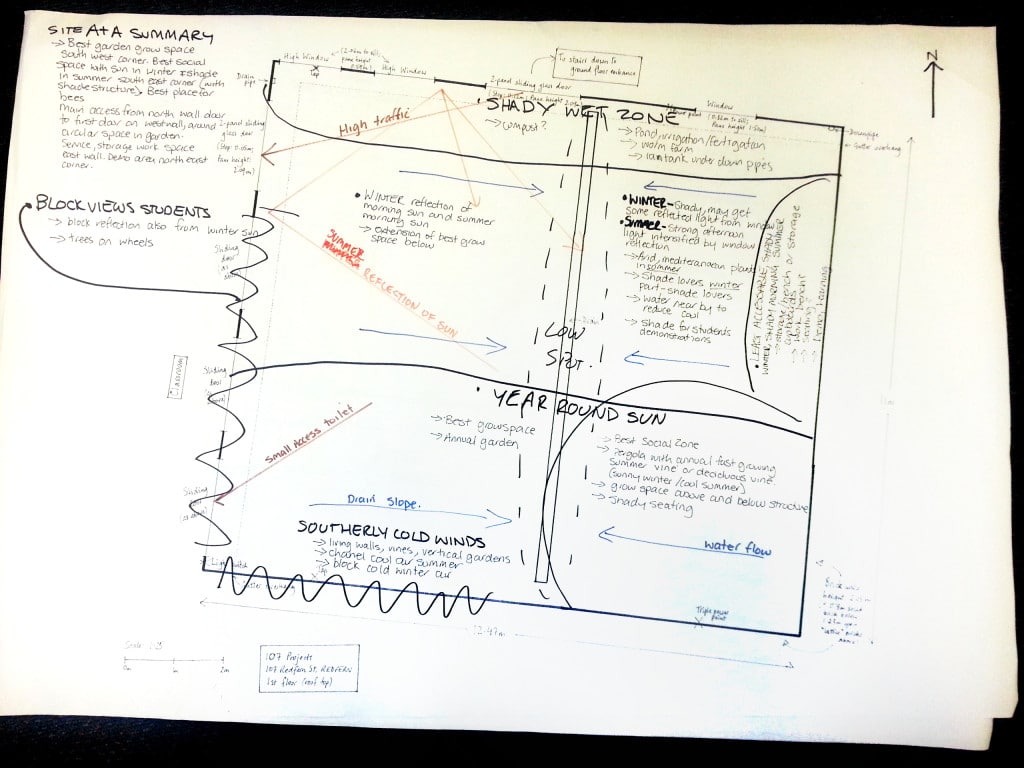 SITE A+A SUMMARY
→ Best garden grow space
south west corner. Best social
space with sun in winter + shade
in summer south east corner (with
shade structure). Best place for
bees
Main access from north wall door
to first door on west wall, around
circular space in garden.
Service, storage work space
east wall. Demo area north east
corner.
BLOCK VIEWS STUDENTS
→ block reflection also from winter sun
→ trees on wheels
High Window
Tap
High Window
Drain pipe
2-panel sliding glass door
To stairs down to
ground floor entrance
Window
N
Downpipe
2-panel sliding
glass door
High traffic
• SHADY WET ZONE
→ compost?
→ Pond, irrigation/fertigation
→ worm farm
→ rain tank under down pipes
• WINTER reflection of
morning sun and summer
morning sun
→ extension of best grow
space below
• WINTER - Shady, may get
some reflected light from window
• SUMMER - Strong afternoon
light intensified by window
reflection
→ Arid, mediterranean plants
in summer
→ Shade lovers winter
part-shade lovers
→ water near by to
reduce cool
→ Shade for students
demonstrations
• LEAST ACCESSABLE, SHADY IN
WINTER, SHADY MORNING SUMMER
→ storage/bench or storage
cupboards
→ work bench
→ seating
SUMMER
REFLECTION OF SUN
Drain
LOW
SPOT.
Classroom
Sliding
door
Sliding
door
Sliding
• YEAR ROUND SUN
→ Best growspace
→ Annual garden
→ Best social zone
→ Pergola with annual fast growing
summer vine or deciduous vine.
(sunny winter/cool summer)
→ grow space above and below structure
→ Shady seating
Small Access toilet
Drain slope.
water flow
SOUTHERLY COLD WINDS
→ living walls, vines, vertical gardens
→ chanel cool air summer
→ block cold winter air
Light switch
Tap
Triple power
point
12.47m
0m 1m 2m
107 Projects
107 Redfern St, REDFERN
1st floor (roof top)